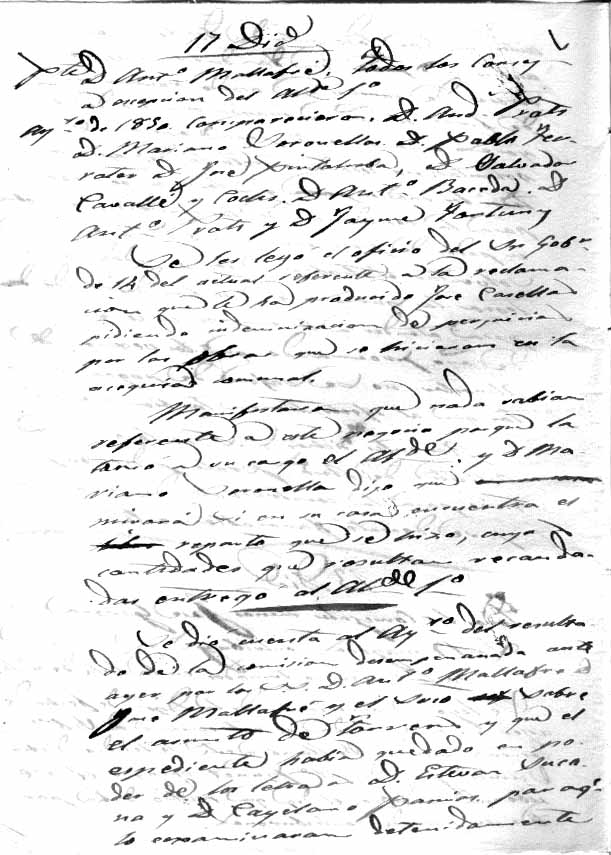 17 Dic^e
Pte D Ant.º Mallafré, todos los Concej
a escepcion del Al^de 1º
Ay^to de 1850. comparecieron. D. And Prats
D. Mariano Veronella. D. Pablo Fer-
rater D. José Pintaluba, D. Salvador
Cavallé y Codes. D. Ant.º Baceda. D
Ant.º Prats y D Jayme Fortuny
Se les leyó el oficio del Sr Gob^r
de 14 del actual referente a la reclama-
cion que le ha producido José Casellas
pidiendo indemnizacion de perjuicios
por las obras que se hicieron en la
acequia comunal.
Manifestaron que nada sabian
referente a este negocio porque la
tomó a su cargo el Al^de 1º y D Ma-
riano Veronella dijo que
mirará si en su casa encuentra el
reparto que se hizo, cuyas
cantidades que resultan recauda-
das entregó al Al^de 1º
Se dio cuenta al Ay^to del resulta-
do de la comision desempeñada ante
ayer por los S. D. Ant.º Mallafré
José Mallafré y el Srio sobre
el asunto de Torrens y que el
espediente habia quedado en po-
der de los letra D. Estevan Suca
na y D Cayetano para q^e
lo examinaran detenidamente